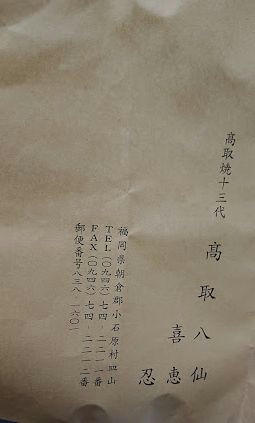 髙取焼十三代
髙取八仙
喜恵
忍
福岡県朝倉郡小石原村皿山
TEL(〇九四六)七四-二二一一番
FAX(〇九四六)七四-二二一二番
郵便番号八三八-一六〇一